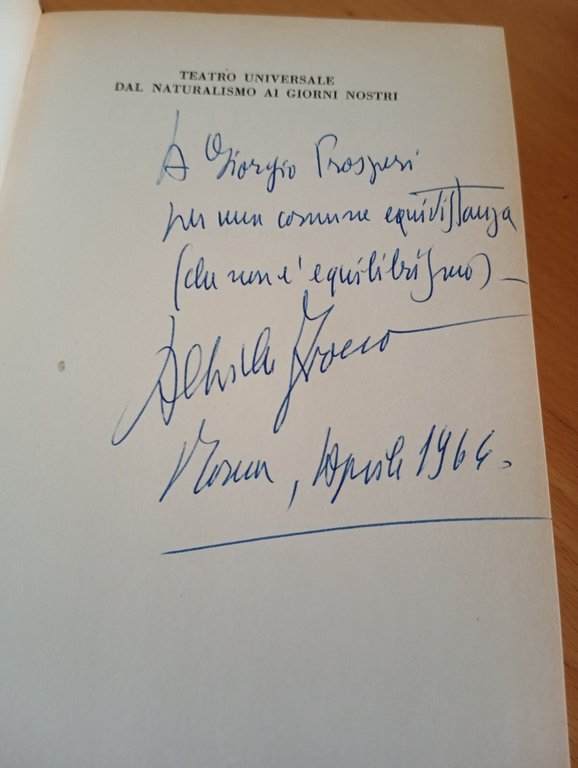 TEATRO UNIVERSALE
DAL NATURALISMO AI GIORNI NOSTRI
A Giorgio Prosperi
per una comune equidistanza
(che non è equilibrismo) –
Achille Fiocco
Roma, Aprile 1964.